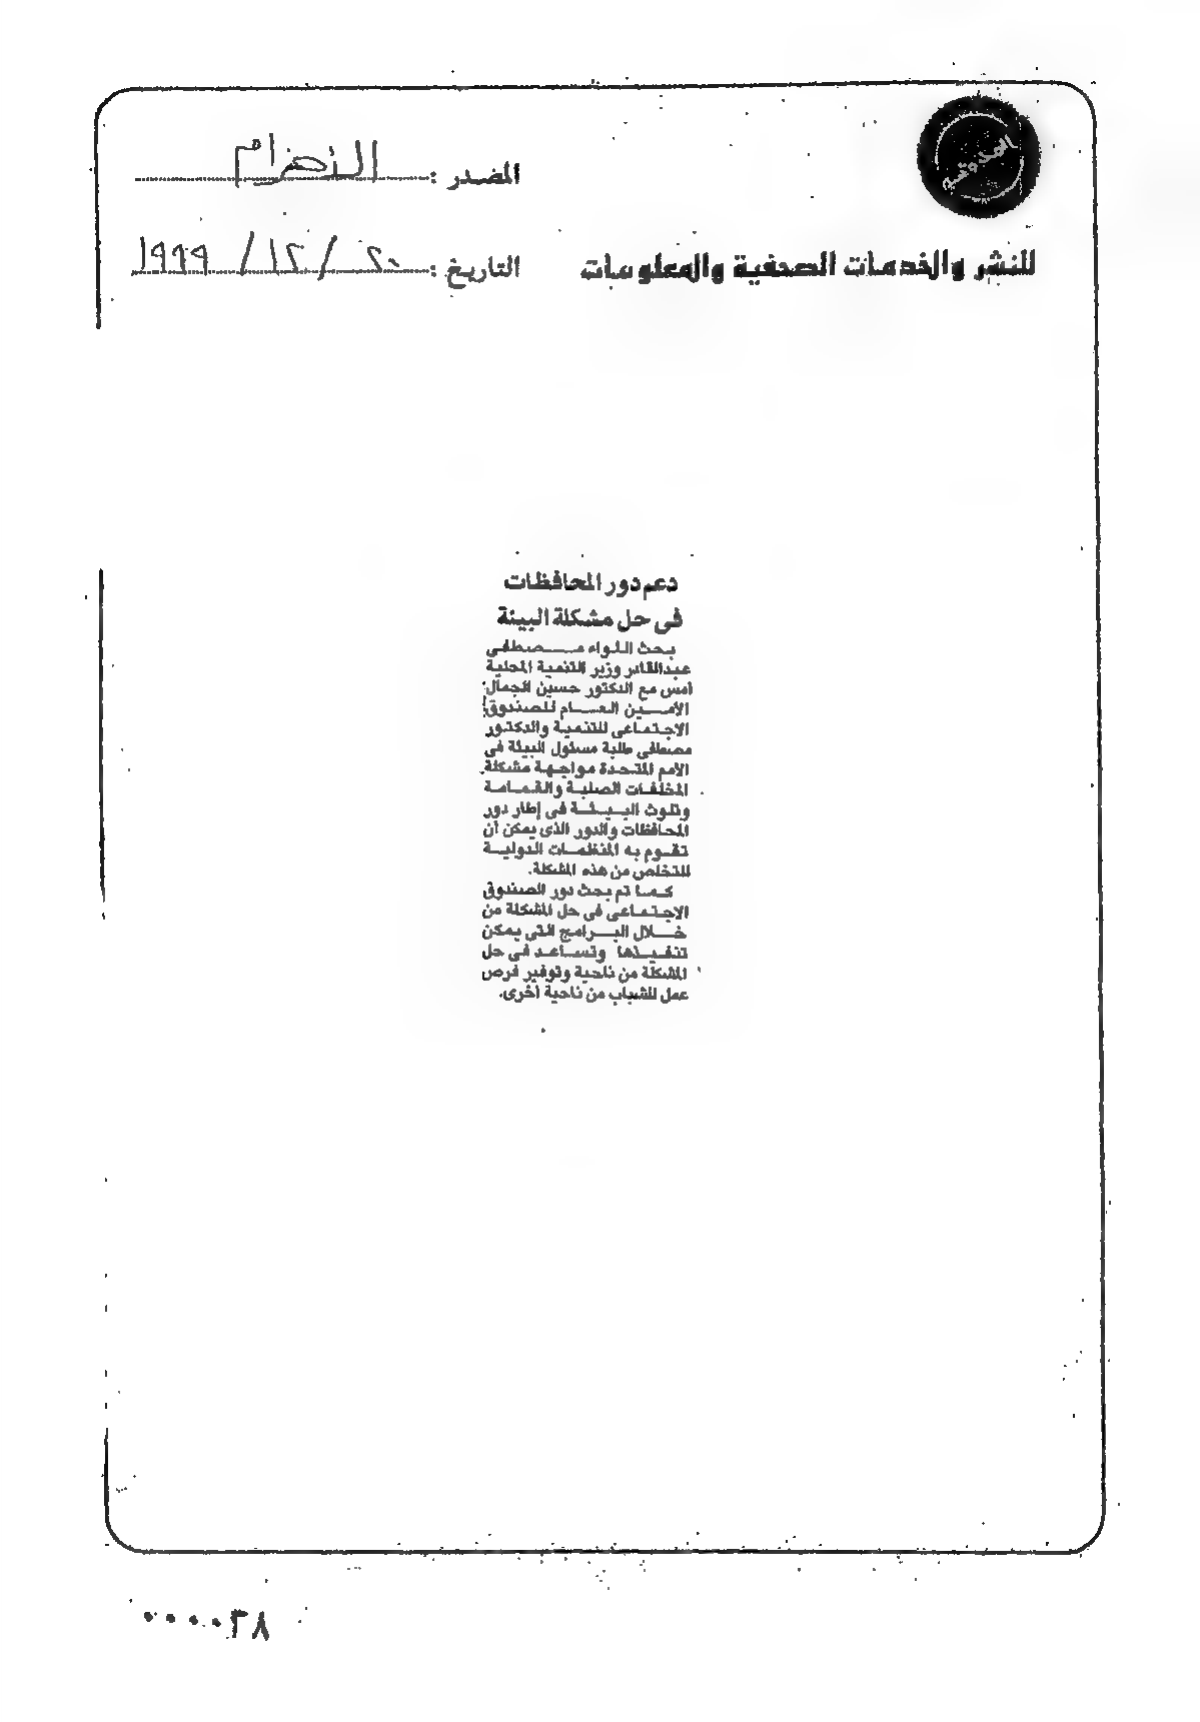 المصدر : الأهرام
للنشر والخدمات الصحفية والمعلومات
التاريخ : ٢٠ / ١٢ / ١٩٩٩
دعم دور المحافظات
فى حل مشكلة البيئة
بحث اللواء مصطفى
عبدالقادر وزير التنمية المحلية
أمس مع الدكتور حسين الجمال
الأمين العام للصندوق
الاجتماعى للتنمية والدكتور
مصطفى طلبة مسئول البيئة فى
الأمم المتحدة مواجهة مشكلة
المخلفات الصلبة والقمامة
وتلوث البيئة فى إطار دور
المحافظات والدور الذى يمكن أن
تقوم به المنظمات الدولية
للتخلص من هذه المشكلة.
كما تم بحث دور الصندوق
الاجتماعى فى حل المشكلة من
خلال البرامج التى يمكن
تنفيذها وتساعد فى حل
المشكلة من ناحية وتوفير فرص
عمل للشباب من ناحية أخرى.
٠٠٠٠٣٨